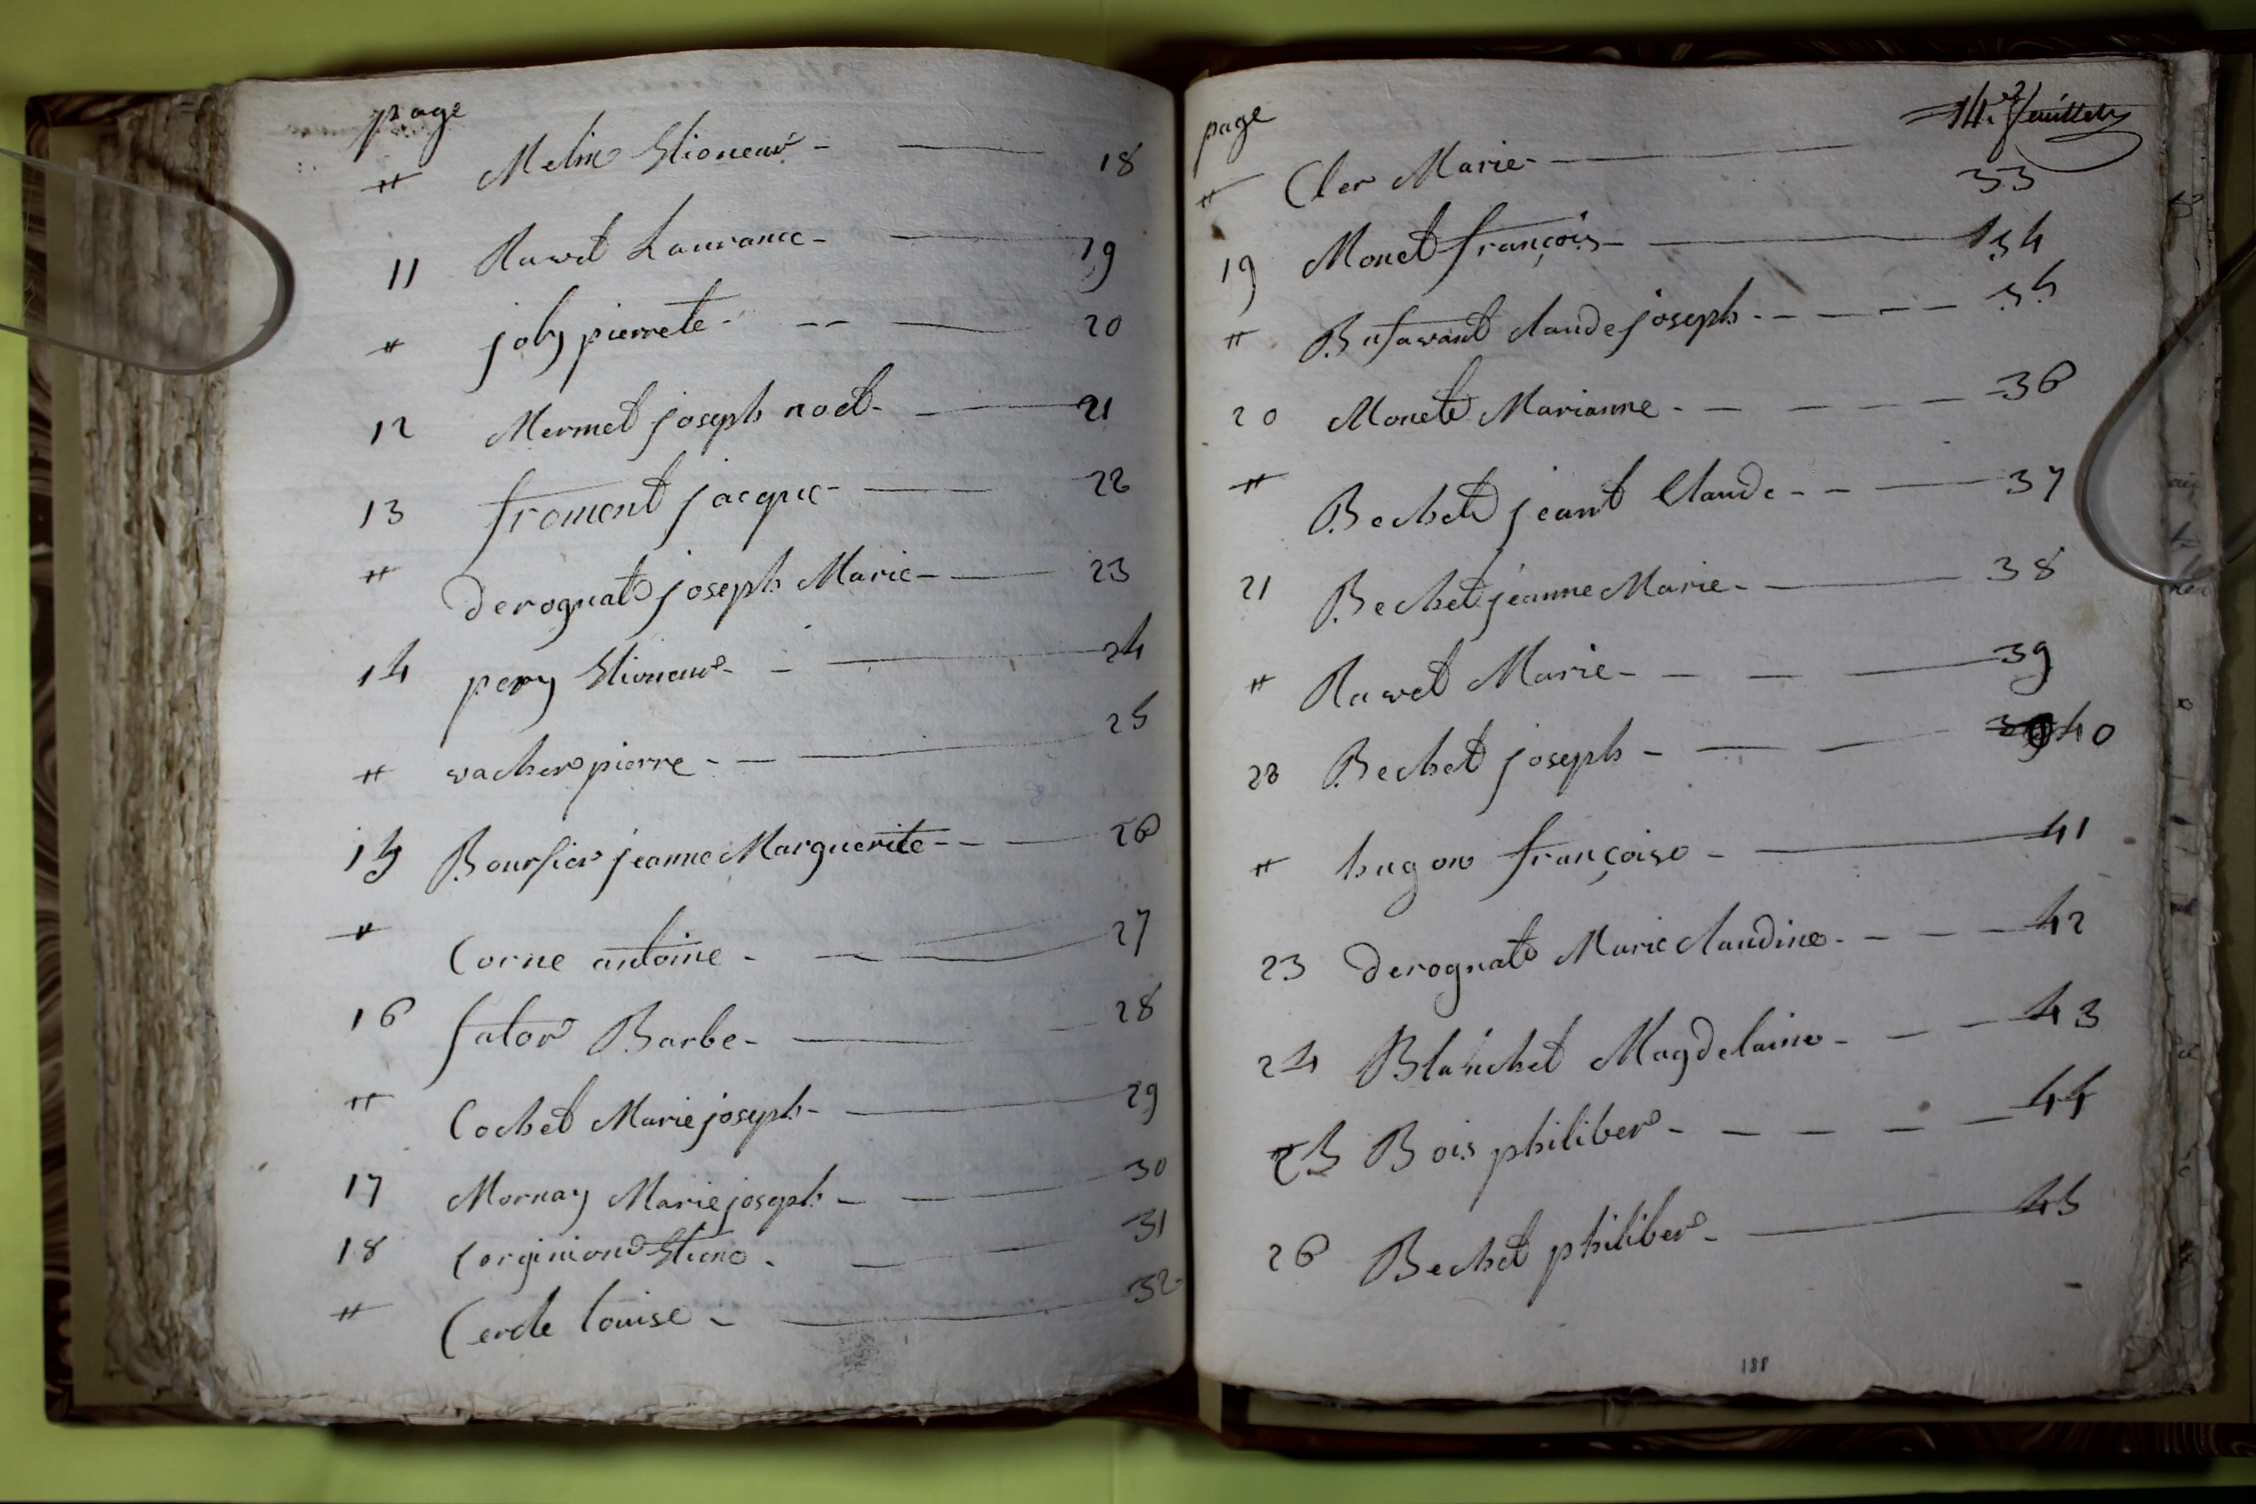 page
" Melin Etioneur - 18
11 Ravet Laurance - 19
" joly pierrete - 20
12 Mermet joseph noel - 21
13 froment jacque - 22
" derognat joseph Marie - 23
14 pery Etioneur - 24
" vacher pierre - 25
15 Boursier jeanne Marguerite - 26
" Corne antoine - 27
16 fator Barbe - 28
" Cochet Marie joseph - 29
17 Mornay Marie joseph - 30
18 Corginion Etiene - 31
" Cercle louise - 32
page 14e feuillet
" Cler Marie - 33
19 Monet françois - 34
" Butavant claude joseph - 35
20 Monete Marianne - 36
" Bechet jeant Claude - 37
21 Bechet jeanne Marie - 38
" Ravet Marie - 39
22 Bechet joseph - 40
" hugon françoise - 41
23 derognat Marie claudine - 42
24 Blanchet Magdelaine - 43
25 Bois philiber - 44
26 Bechet philiber - 45
188